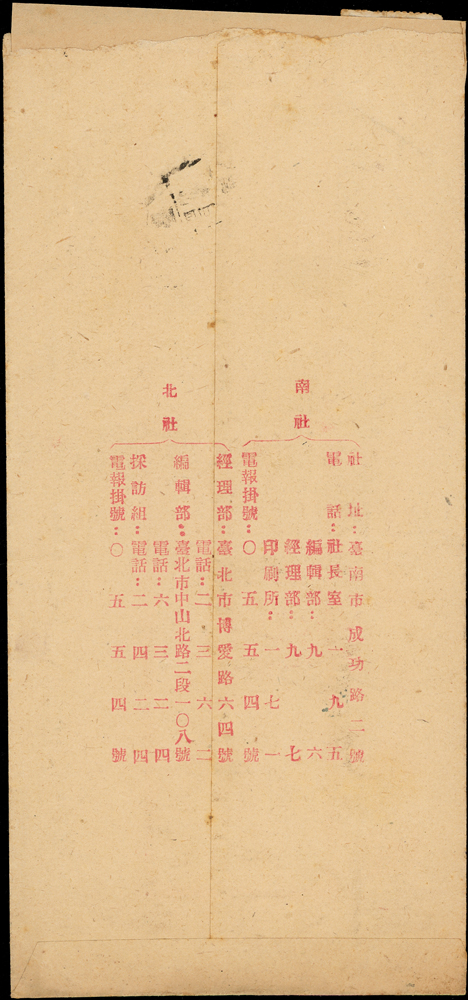 南社
社址：臺南市成功路二號
電話：社長室一九五
編輯部：九六
經理部：九七
印刷所：一七一
電報掛號：〇五五四號
北社
經理部：臺北市博愛路六四號
電話：二三六二
編輯部：臺北市中山北路二段一〇八號
電話：六三二四
採訪組：電話：二四二四
電報掛號：〇五五四號